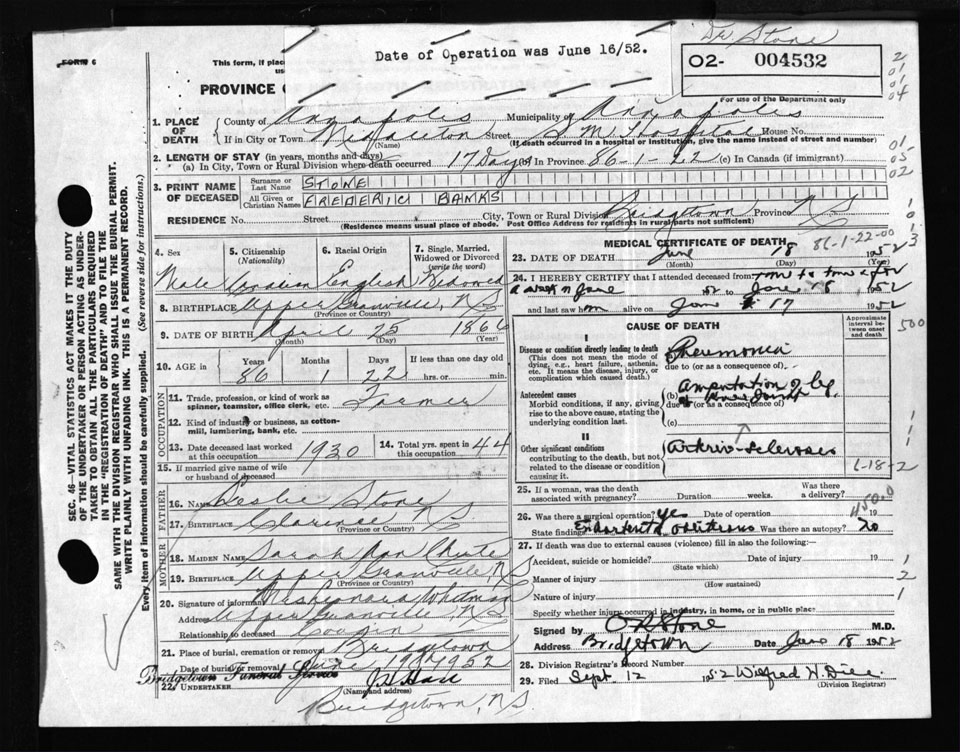 FORM 6
This form, if place
Date of Operation was June 16/52.
Dr Stone
02- 004532
For use of the Department only
PROVINCE
1. PLACE OF DEATH County of Annapolis Municipality of Annapolis
If in City or Town Middleton (Name) Street S M Hospital House No.
(If death occurred in a hospital or institution, give the name instead of street and number)
2. LENGTH OF STAY (in years, months and days)
(a) In City, Town or Rural Division where death occurred 17 Days In Province 86-1-22 (c) In Canada (if immigrant)
3. PRINT NAME OF DECEASED Surname or Last Name STONE
All Given or Christian Names FREDERIC BANKS
RESIDENCE No. Street City, Town or Rural Division Bridgetown Province N S
(Residence means usual place of abode. Post Office Address for residents in rural parts not sufficient)
4. Sex Male
5. Citizenship (Nationality) Canadian
6. Racial Origin English
7. Single, Married, Widowed or Divorced (write the word) Widowed
8. BIRTHPLACE Upper Granville, N S
(Province or Country)
9. DATE OF BIRTH April 25 1866
(Month) (Day) (Year)
10. AGE in Years 86 Months 1 Days 22 If less than one day old hrs. or min.
OCCUPATION
11. Trade, profession, or kind of work as spinner, teamster, office clerk, etc. Farmer
12. Kind of industry or business, as cotton-mill, lumbering, bank, etc.
13. Date deceased last worked at this occupation 1930
14. Total yrs. spent in this occupation 44
15. If married give name of wife or husband of deceased
FATHER
16. Name Leslie Stone
17. Birthplace Clarence, N S
(Province or Country)
MOTHER
18. MAIDEN NAME Sarah Ann Chute
19. BIRTHPLACE Upper Granville, N S
(Province or Country)
20. Signature of informant Whitman
Address Upper Granville, N S
Relationship to deceased Cousin
21. Place of burial, cremation or removal Bridgetown
Date of burial or removal June 19th 1952
Bridgetown Funeral Service
22. UNDERTAKER
(Name and address)
Bridgetown, N.S.
MEDICAL CERTIFICATE OF DEATH
86-1-22-00
23. DATE OF DEATH June 18 1952
(Month) (Day) (Year)
24. I HEREBY CERTIFY that I attended deceased from time to time for
a week in June to June 18 1952
and last saw him alive on June 17 1952
CAUSE OF DEATH
Approximate interval between onset and death
I
Disease or condition directly leading to death
(This does not mean the mode of dying, e.g., heart failure, asthenia, etc. It means the disease, injury, or complication which caused death.)
(a) Pneumonia
due to (or as a consequence of)
Antecedent causes
Morbid conditions, if any, giving rise to the above cause, stating the underlying condition last.
(b) Amputation of leg
due to (or as a consequence of)
(c)
II
Other significant conditions
contributing to the death, but not related to the disease or condition causing it.
Arterio-sclerosis
25. If a woman, was the death associated with pregnancy? Duration weeks. Was there a delivery?
26. Was there a surgical operation? Yes Date of operation 19
State findings Endarteritis obliterans Was there an autopsy? No
27. If death was due to external causes (violence) fill in also the following:
Accident, suicide or homicide? Date of injury 19
(State which)
Manner of injury
(How sustained)
Nature of injury
Specify whether injury occurred in industry, in home, or in public place
Signed by Stone M.D.
Address Bridgetown Date June 18 1952
28. Division Registrar's Record Number
29. Filed Sept. 12 1952 Wilfred H.
(Division Registrar)
SEC. 46—VITAL STATISTICS ACT MAKES IT THE DUTY
OF THE UNDERTAKER OR PERSON ACTING AS UNDER-
TAKER TO OBTAIN ALL THE PARTICULARS REQUIRED
IN THE "REGISTRATION OF DEATH" AND TO FILE THE
SAME WITH THE DIVISION REGISTRAR WHO SHALL ISSUE THE BURIAL PERMIT.
WRITE PLAINLY WITH UNFADING INK. THIS IS A PERMANENT RECORD.
Every item of information should be carefully supplied. (See reverse side for instructions.)